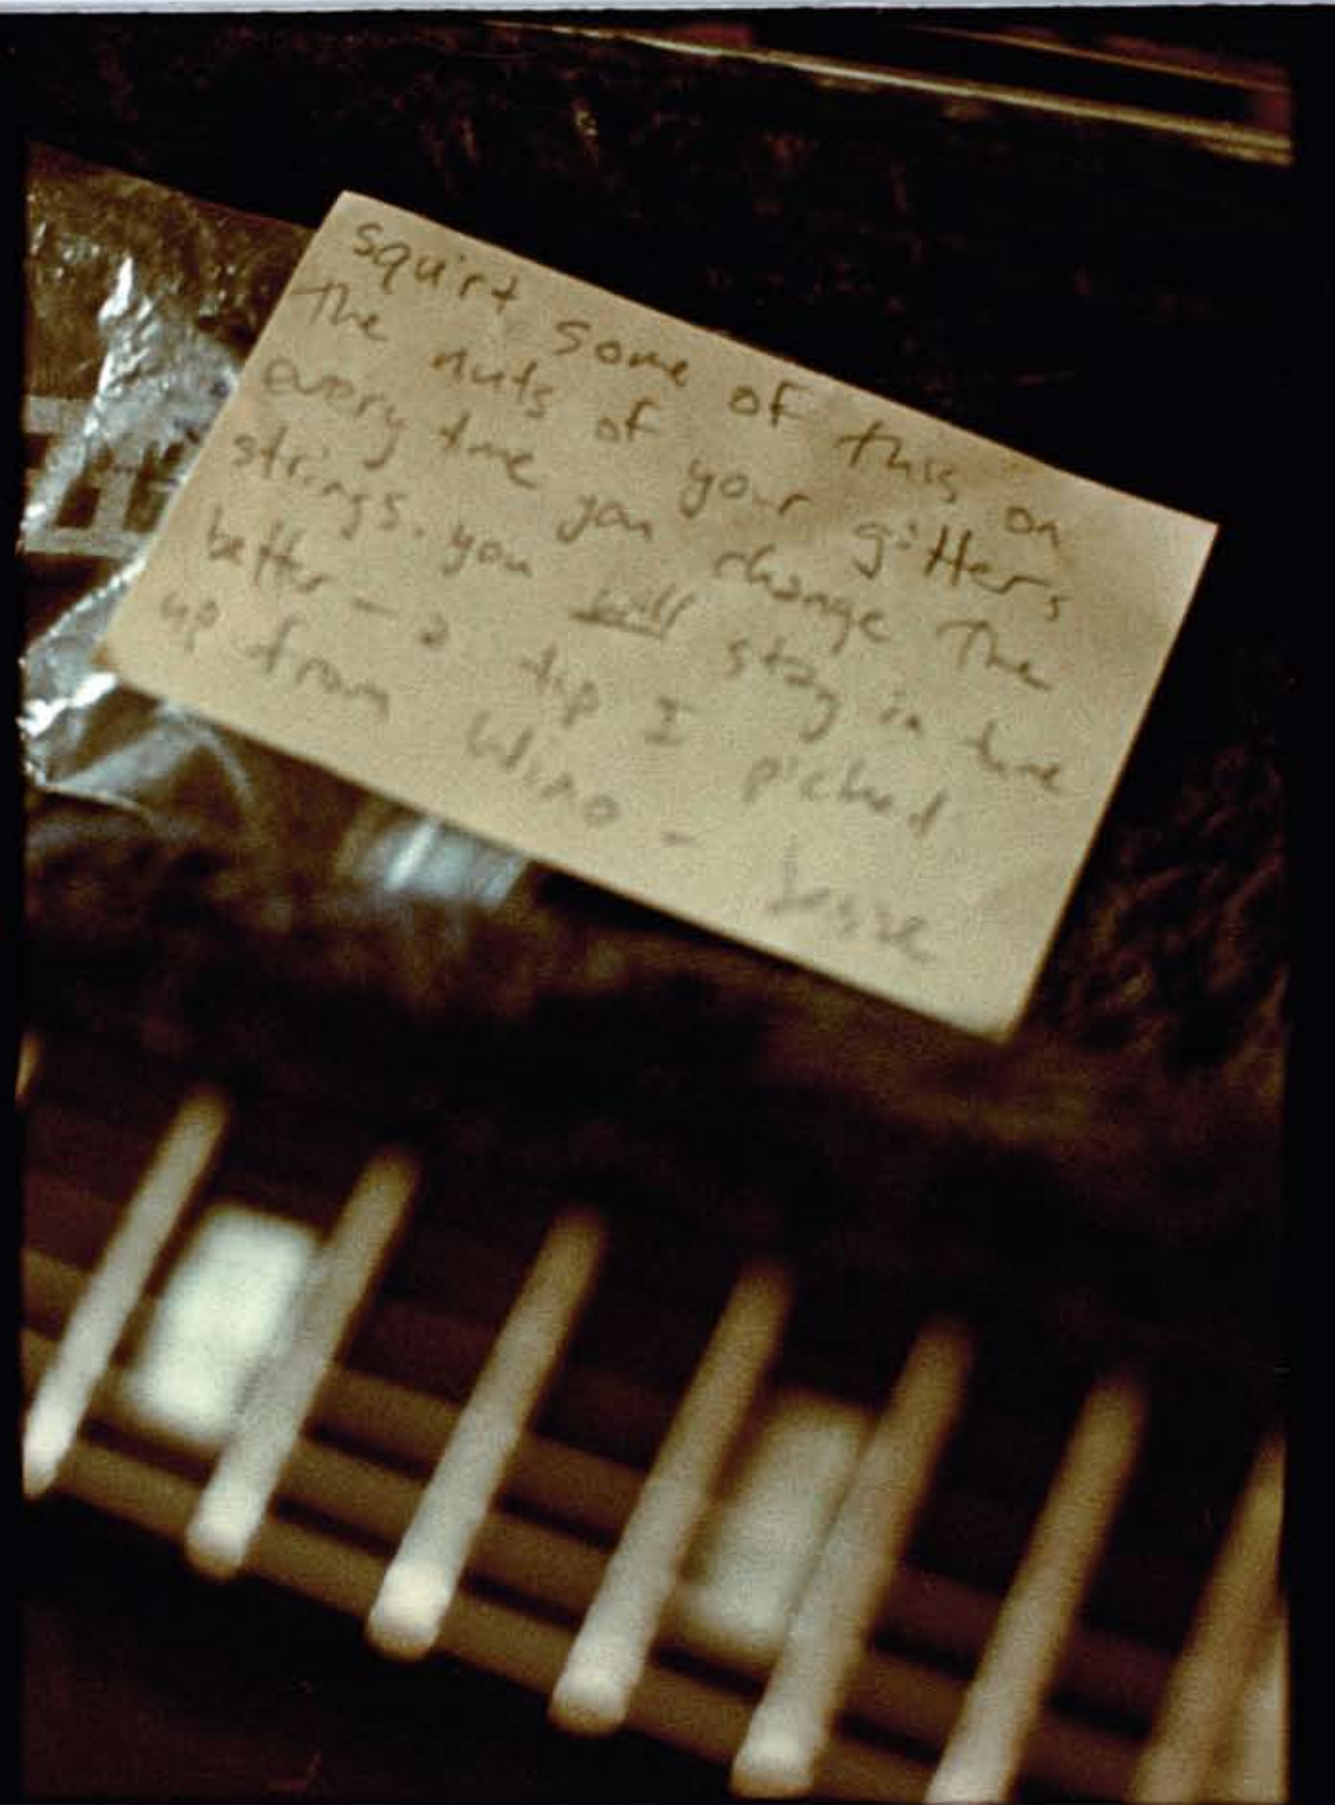 squirt some of this on
the nuts of your gitters
every time you change the
strings. you will stay in tune
better – a tip I picked
up from Wino –